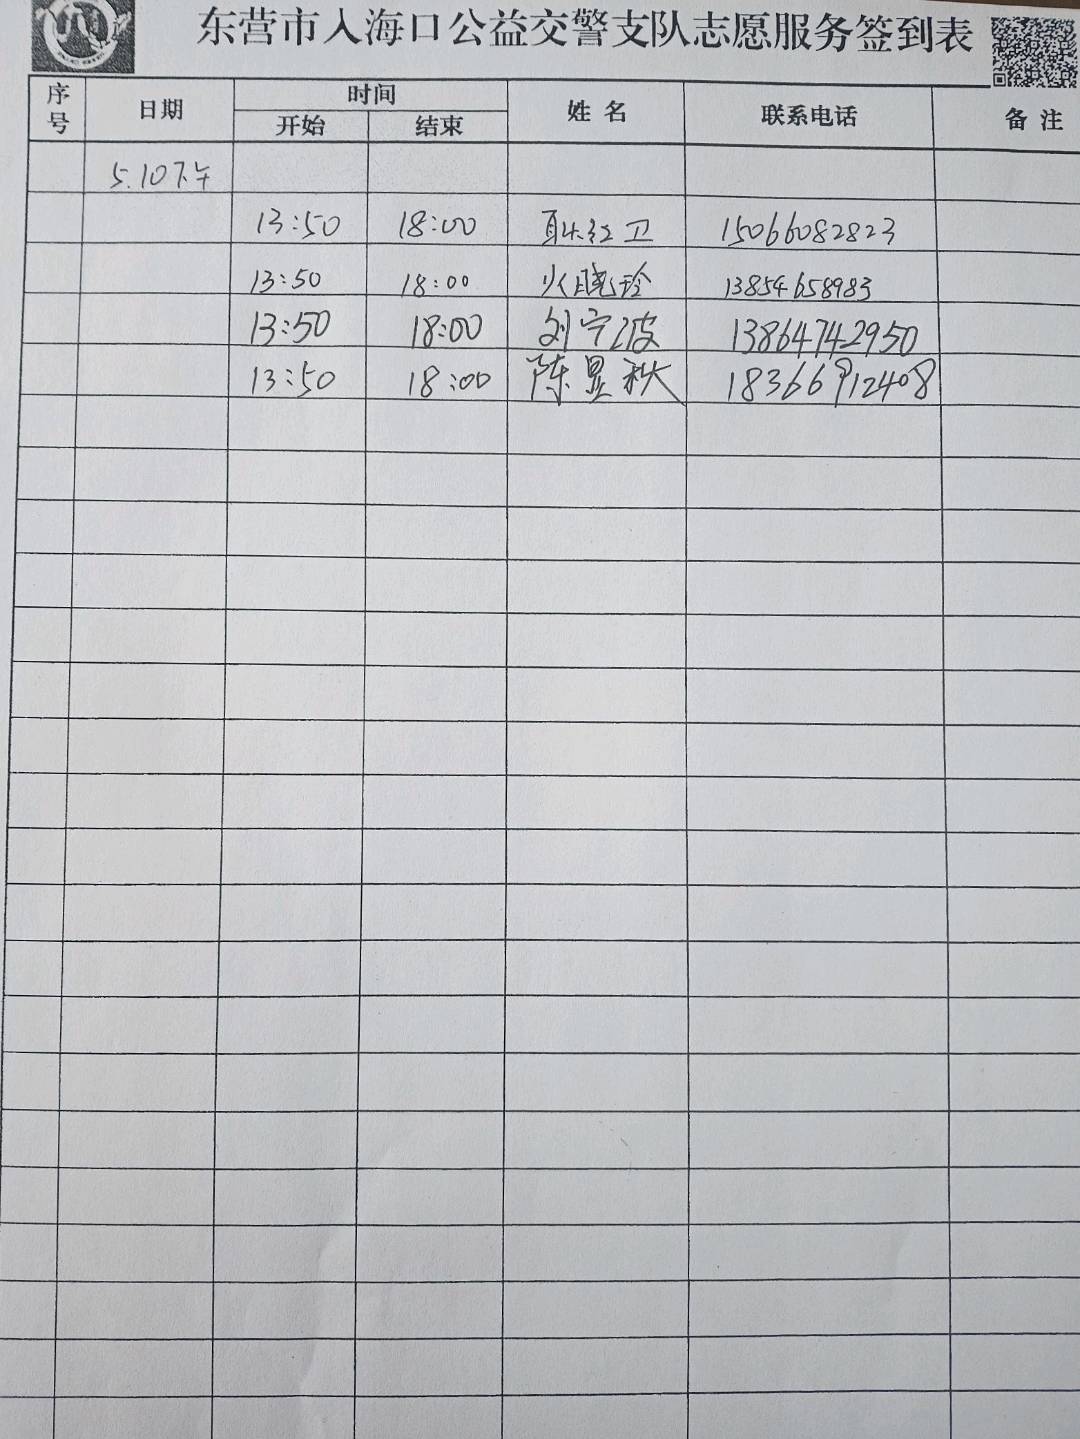 东营市入海口公益交警支队志愿服务签到表
序号 日期 时间 姓名 联系电话 备注
开始 结束
5.10下午
13:50 18:00 耿红卫 15066082823
13:50 18:00 晓玲 13854658983
13:50 18:00 刘宁波 13864742950
13:50 18:00 陈昱秋 18366912408